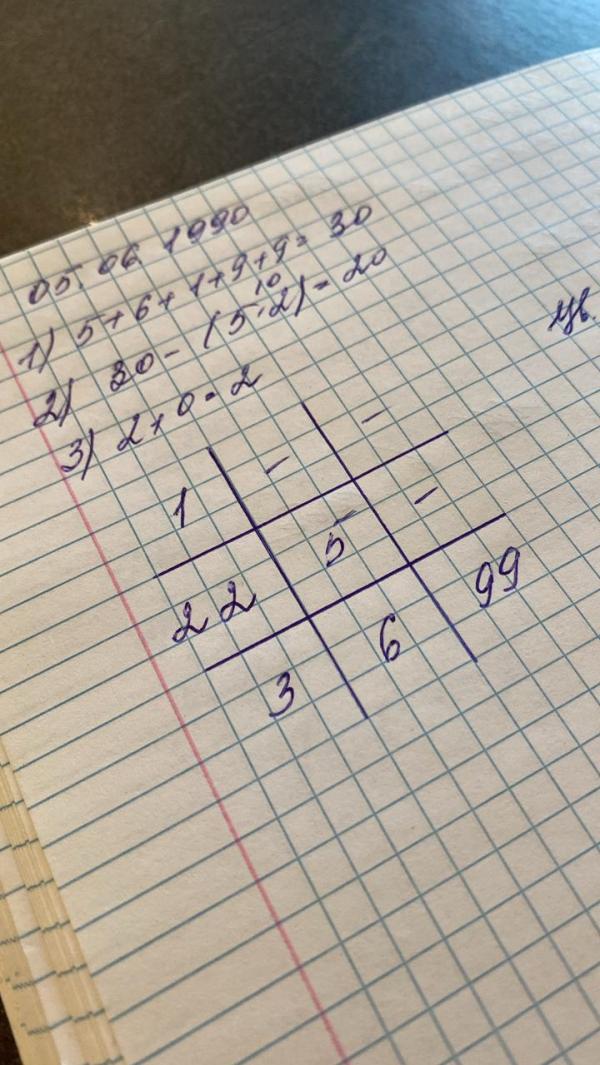 05.06.1990
1) 5+6+1+9+9=30
2) 30-(5·2)=20
10
3) 2+0=2
1 - -
22 5 -
3 6 99